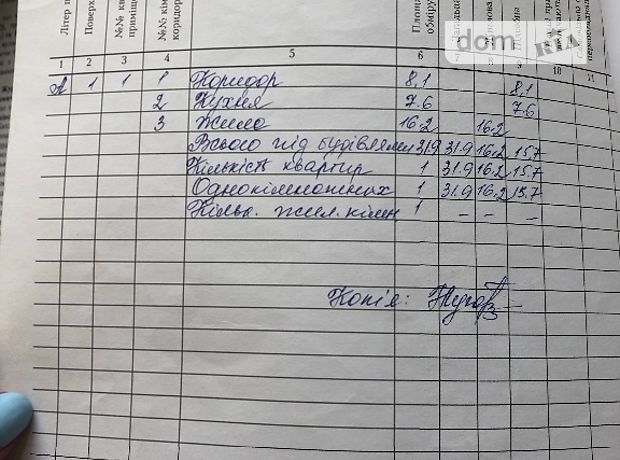 Літер п
Поверх
№№ кв
приміще
№№ кім
коридор
Площа
обміру
dom RIA
1 2 3 4 5 6 10 11
А 1 1 1 Коридор 8,1 8,1
2 Кухня 7.6 7.6
3 Жила 16.2 16.2
Всього під будівлями 31.9 31.9 16.2 15.7
Кількість квартир 1 31.9 16.2 15.7
Однокімнатних 1 31.9 16.2 15.7
Кільк. жил. кімн 1 - - -
Копія: